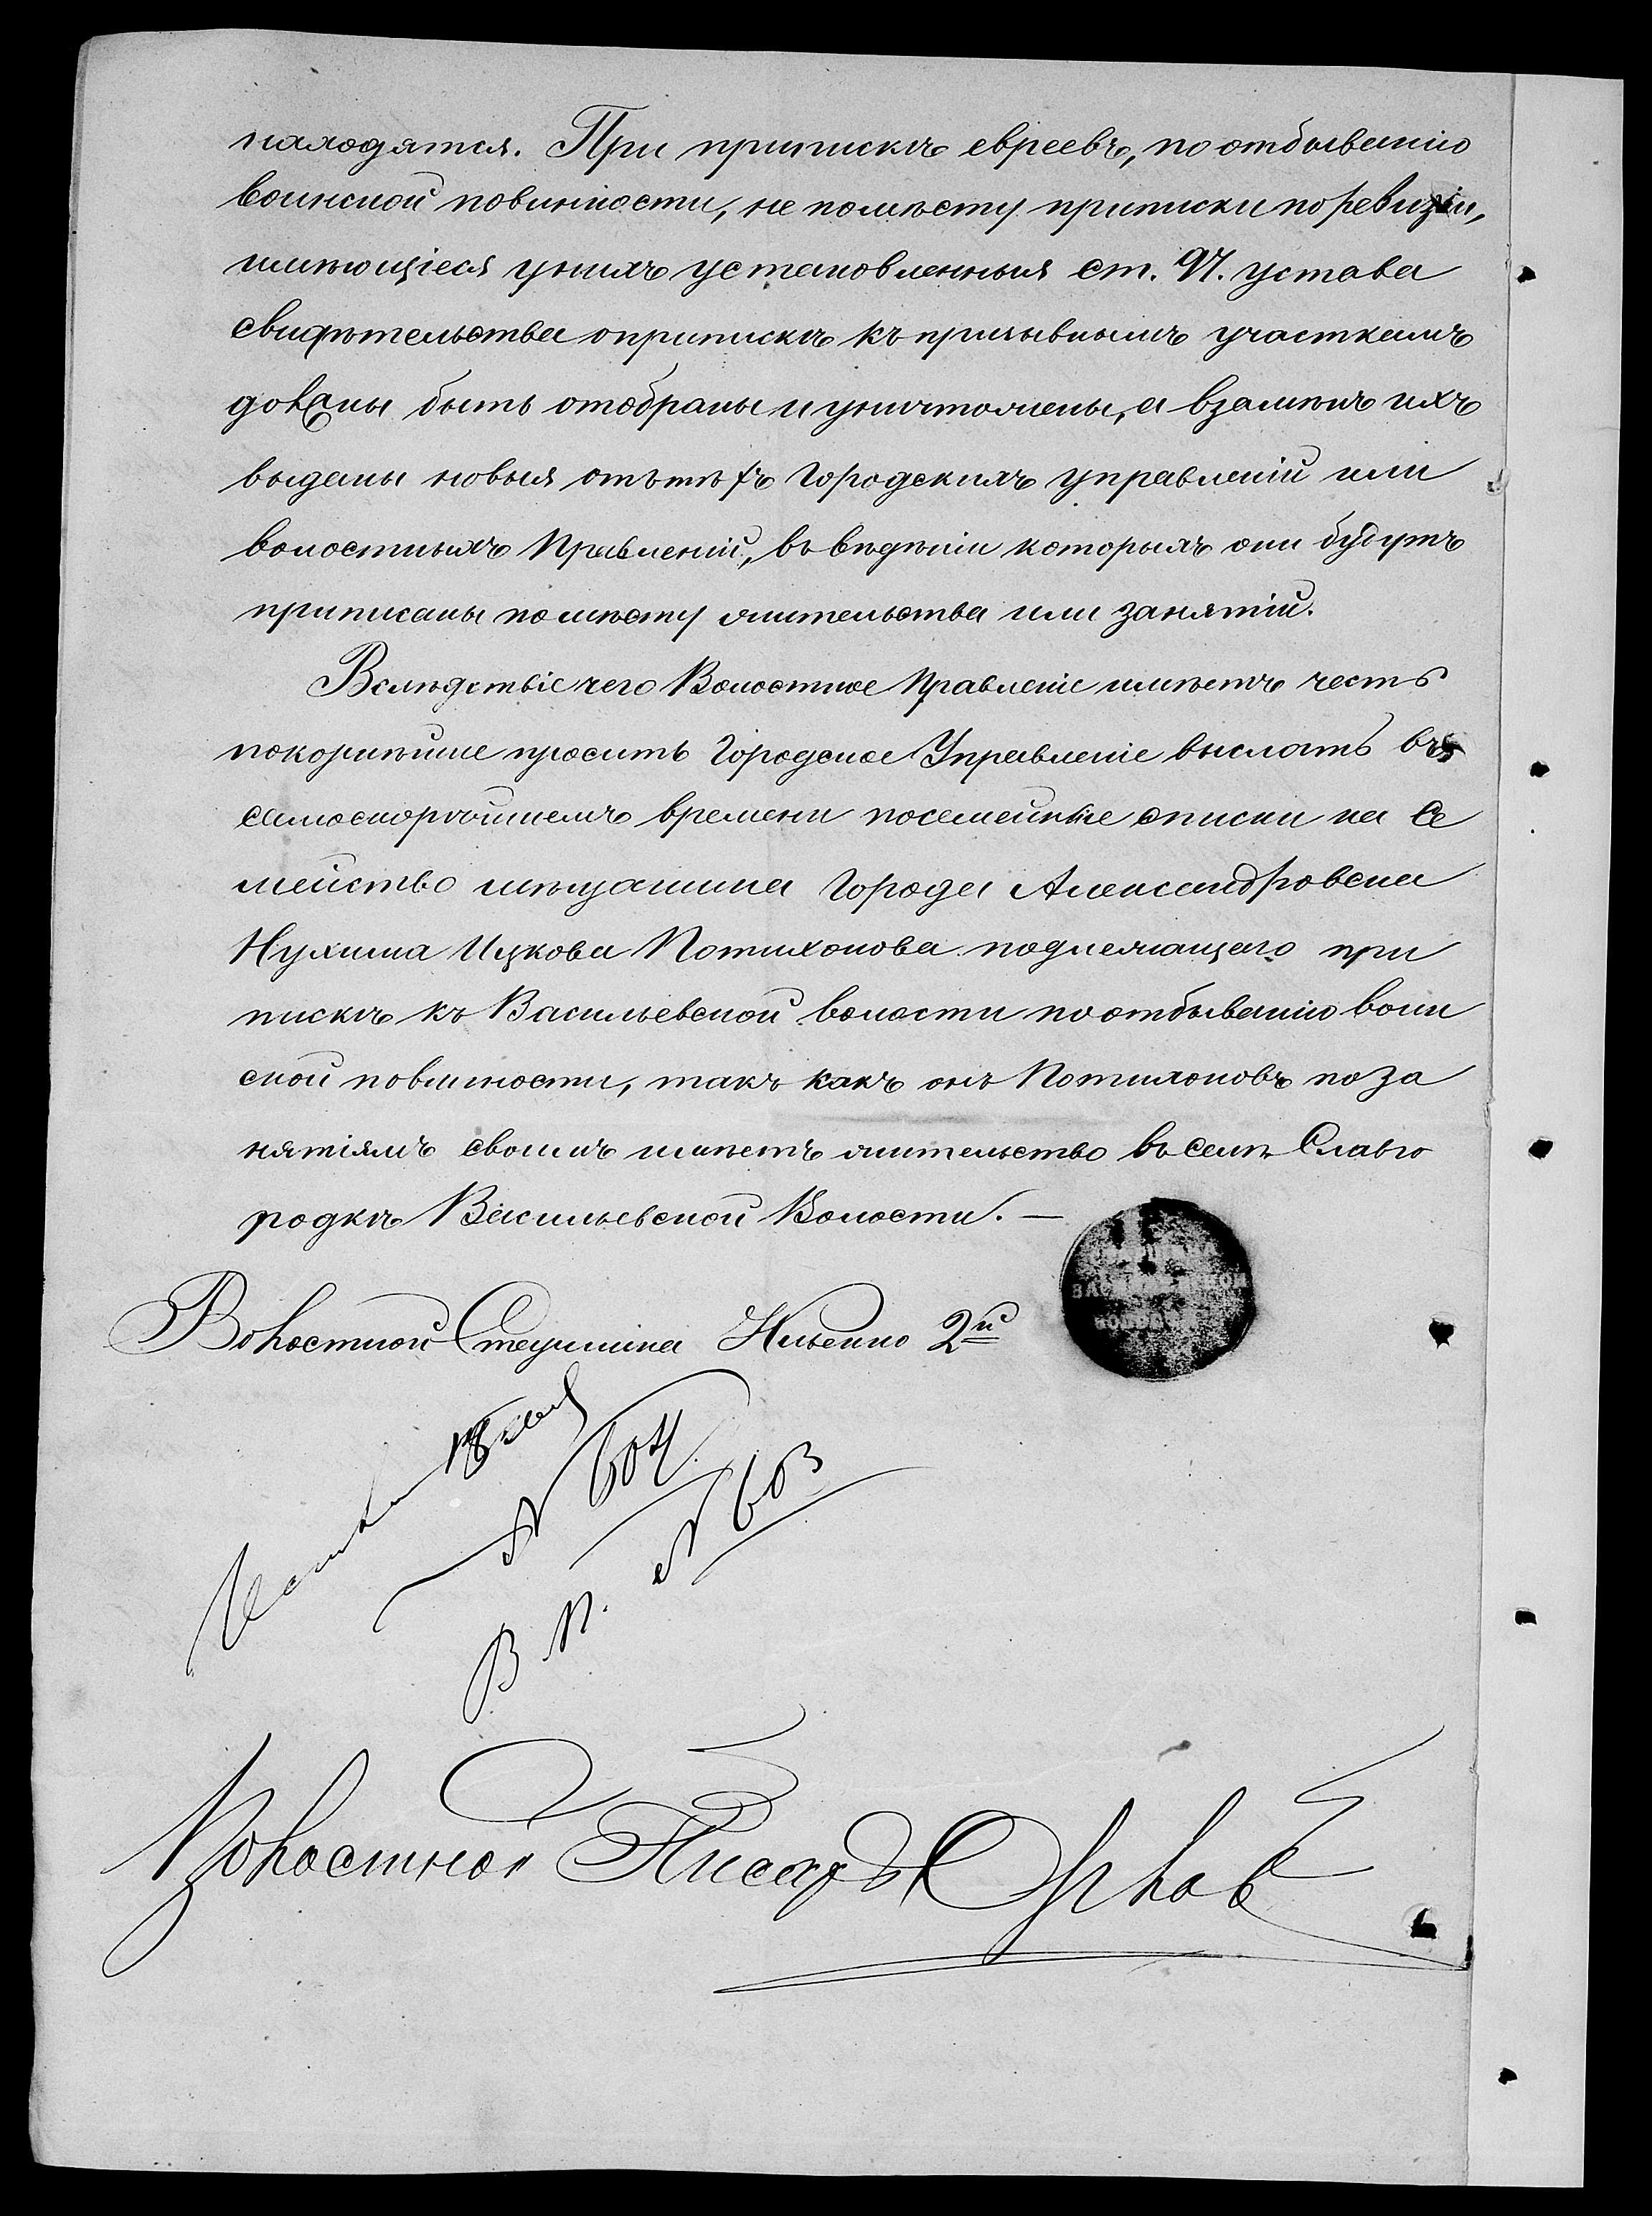 находятся. При припискѣ евреевъ, по отбыванію
воинской повинности, не по мѣсту приписки по ревизіи,
имѣющіеся у нихъ установленныя ст. 97. устава
свидѣтельства о припискѣ къ призывнымъ участкамъ
должны быть отобраны и уничтожены, а взамѣнъ ихъ
выданы новыя отъ тѣхъ Городскихъ управленій или
волостныхъ Правленій, въ вѣдѣніи которыхъ они будутъ
приписаны по мѣсту жительства или занятій.
Вслѣдствіе чего Волостное Правленіе имѣетъ честь
покорнѣйше просить Городское Управленіе выслать въ
самоскорѣйшемъ времени посемейные списки на Се
мейство мѣщанина Города Александровска
Нухима Ицкова Потихонова подлежащаго при
пискѣ къ Васильевской волости по отбыванію воин
ской повинности, такъ какъ онъ Потихоновъ по за
нятіямъ своимъ имѣетъ жительство въ селѣ Славго
родкѣ Васильевской Волости. —
Волостной Старшина Ильенко 2й
№ 604
В. П. № 603
Волостной Писарь Орлов